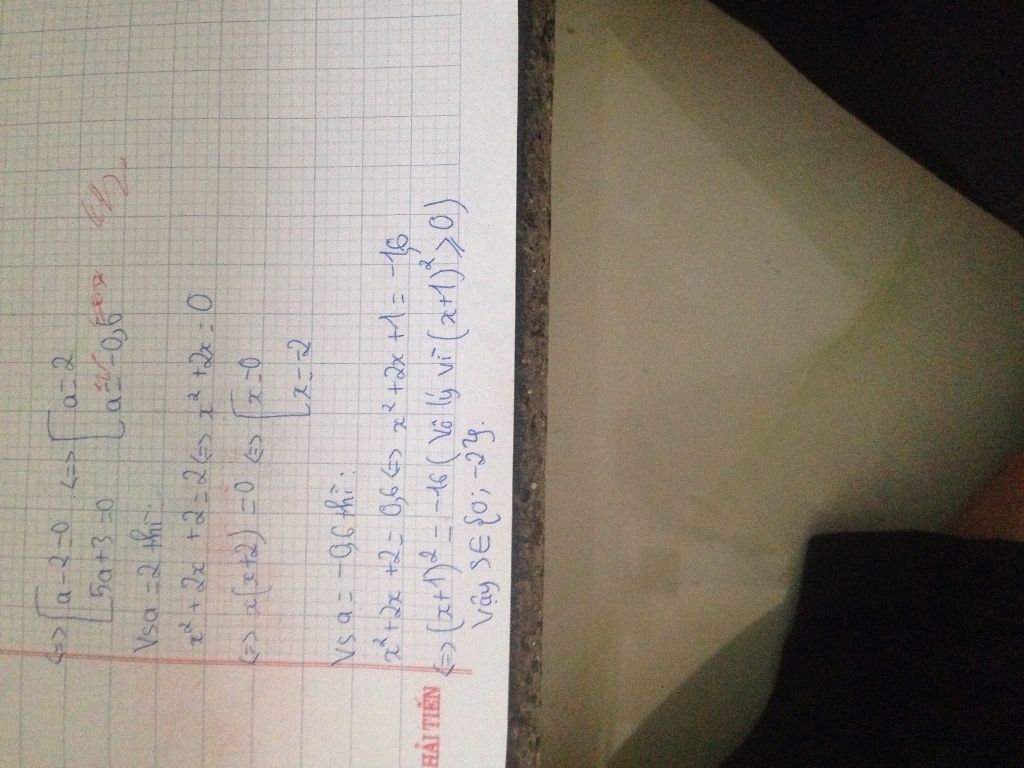 <=> [a-2=0 <=> [a=2
[5a+3=0 [a=-0,6
Vs a=2 thì:
x²+2x+2=2 <=> x²+2x=0
<=> x(x+2)=0 <=> [x=0
[x=-2
Vs a=-0,6 thì:
x²+2x+2=0,6 <=> x²+2x+1=-1,6
<=> (x+1)²=-1,6 (vô lý vì (x+1)²≥0)
Vậy S∈{0;-2}.
HẢI TIẾN